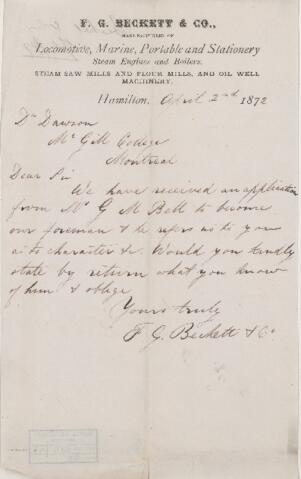 F. G. BECKETT & CO.,
MANUFACTURERS OF
Locomotive, Marine, Portable and Stationery
Steam Engines and Boilers.
STEAM SAW MILLS AND FLOUR MILLS, AND OIL WELL
MACHINERY.
Hamilton, April 2nd 1872
Dr Dawson
McGill College
Montreal
Dear Sir
We have received an application
from Mr G M Bell to become
our foreman & he refers us to you
as to character &c. Would you kindly
state by return what you know
of him & oblige
Yours truly
F. G. Beckett & Co